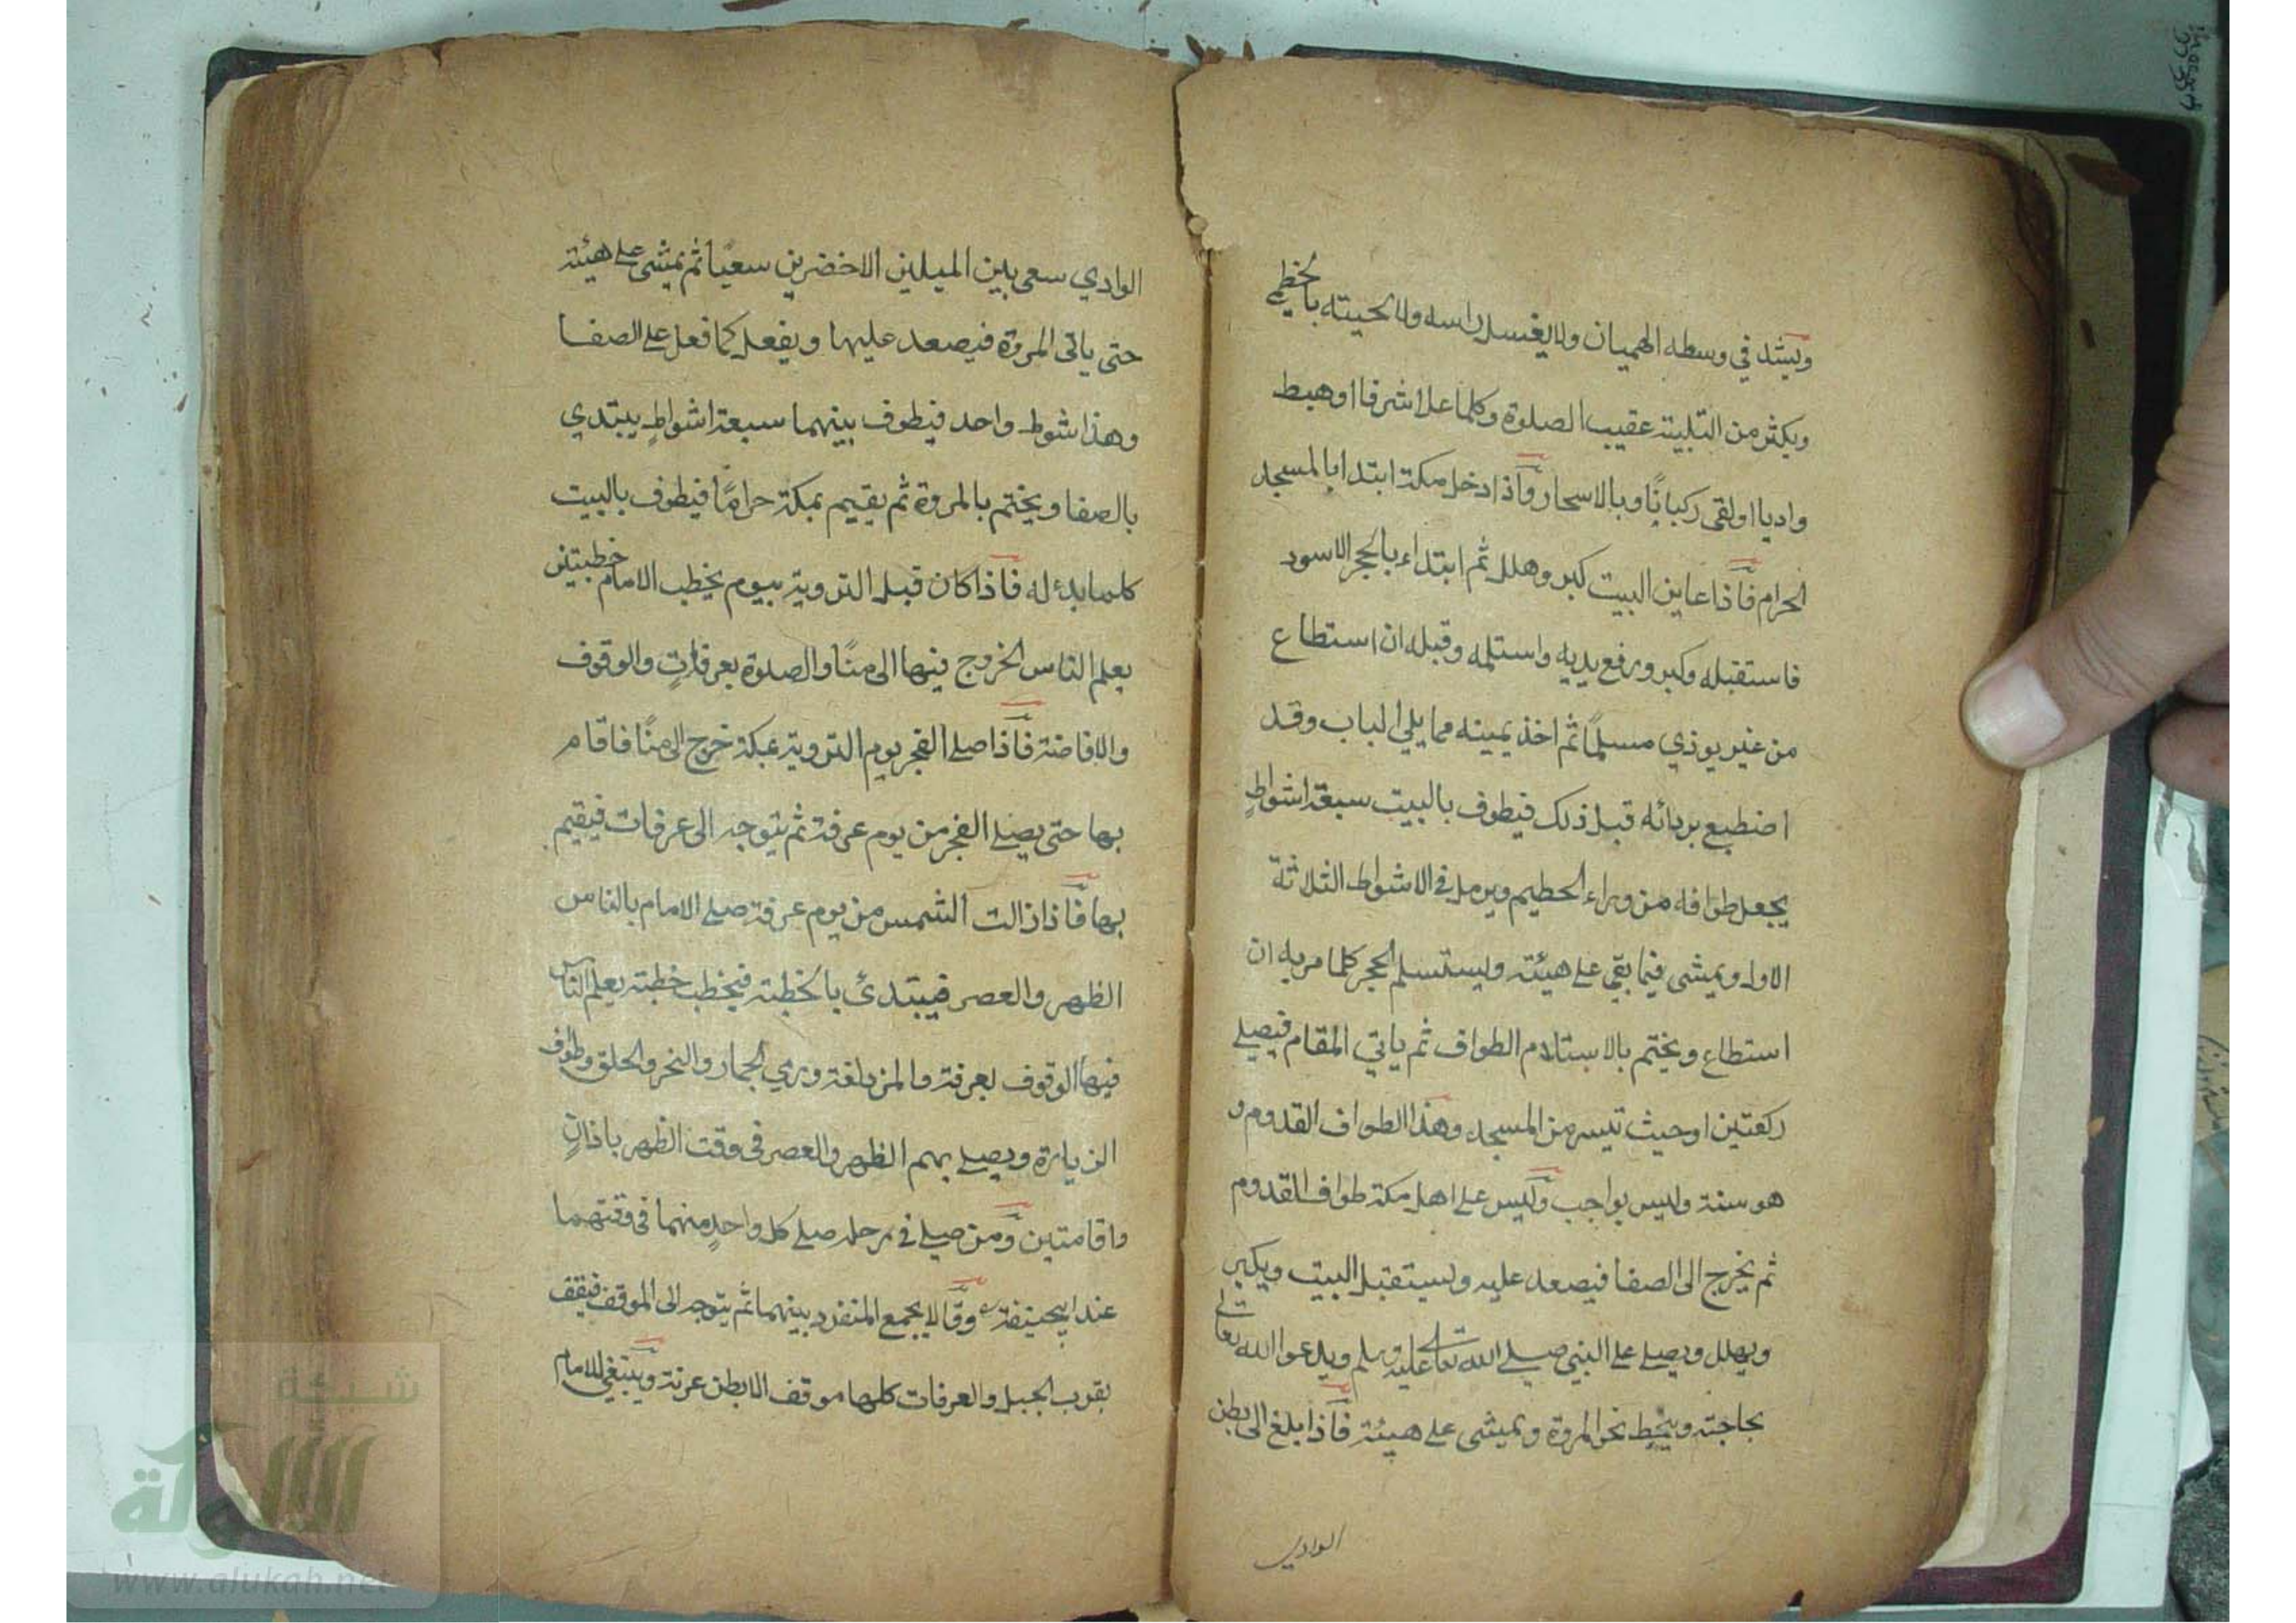 ويشد في وسطه الهميان ولا يغسل راسه ولا لحيته بالخطمي
ويكثر من التلبية عقيب الصلوة وكلما علا شرفا او هبط
واديا او لقى ركبانًا وبالاسحار وَاذا دخل مكة ابتدا بالمسجد
الحرام فَاذا عاين البيت كبر وهلل ثم ابتداء بالحجر الاسود
فاستقبله وكبر ورفع يديه واستلمه وقبله ان استطاع
من غير يوذي مسلمًا ثم اخذ يمينه مما يلي الباب وقد
اضطبع بردائه قبل ذلك فيطوف بالبيت سبعة اشواطٍ
يجعل طوافه من وراء الحطيم ويرمل في الاشواط الثلاثة
الاول ويمشى فيما بقي على هيئة ويستسلم الحجر كلما مر به ان
استطاع ويختم بالاستلام الطواف ثم ياتي المقام فيصلي
ركعتين او حيث تيسر من المسجد وهذا الطواف القدوم و
هو سنة وليس بواجب وَليس على اهل مكة طواف القدوم
ثم يخرج الى الصفا فيصعد عليه ويستقبل البيت ويكبر
ويهلل ويصلي على النبي صلى الله تعالى عليه وسلم ويدعوا الله تعالى
بحاجته ويخط نحو المروة ويمشى على هيئة فَاذا بلغ الى بطن
الوادي
الوادي سعى بين الميلين الاخضرين سعيًا ثم يمشى على هيئة
حتى ياتى المروة فيصعد عليها ويفعل كما فعل على الصفا
وهذا شوط واحد فيطوف بينهما سبعة اشواطٍ يبتدي
بالصفا ويختم بالمروة ثم يقيم بمكة حرامًا فيطوف بالبيت
كلما بدئ له فاذا كان قبل التروية بيوم يخطب الامام خطبتين
يعلم الناس الخروج فيها الى منًا والصلوة بعرفاتٍ والوقوف
والافاضة فَاذا صلى الفجر يوم التروية بمكة خرج الى منًا فاقام
بها حتى يصلي الفجر من يوم عرفة ثم يتوجه الى عرفات فيقيم
بها فَاذا زالت الشمس من يوم عرفة صلى الامام بالناس
الظهر والعصر فيبتدئ بالخطبة فيخطب خطبة يعلم الناس
فيها الوقوف بعرفة والمزدلفة ورمي الجمار والنحر والحلق وطواف
الزيارة ويصلي بهم الظهر والعصر فى وقت الظهر باذانٍ
واقامتين وَمن صلى في رحله صلى كل واحدٍ منهما فى وقتهما
عند ابيحنيفة وقالا يجمع المنفرد بينهما ثم يتوجه الى الموقف فيقف
بقرب الجبل والعرفات كلها موقف الا بطن عرنة وينبغي للامام
شبكة
الألوكة
www.alukah.net